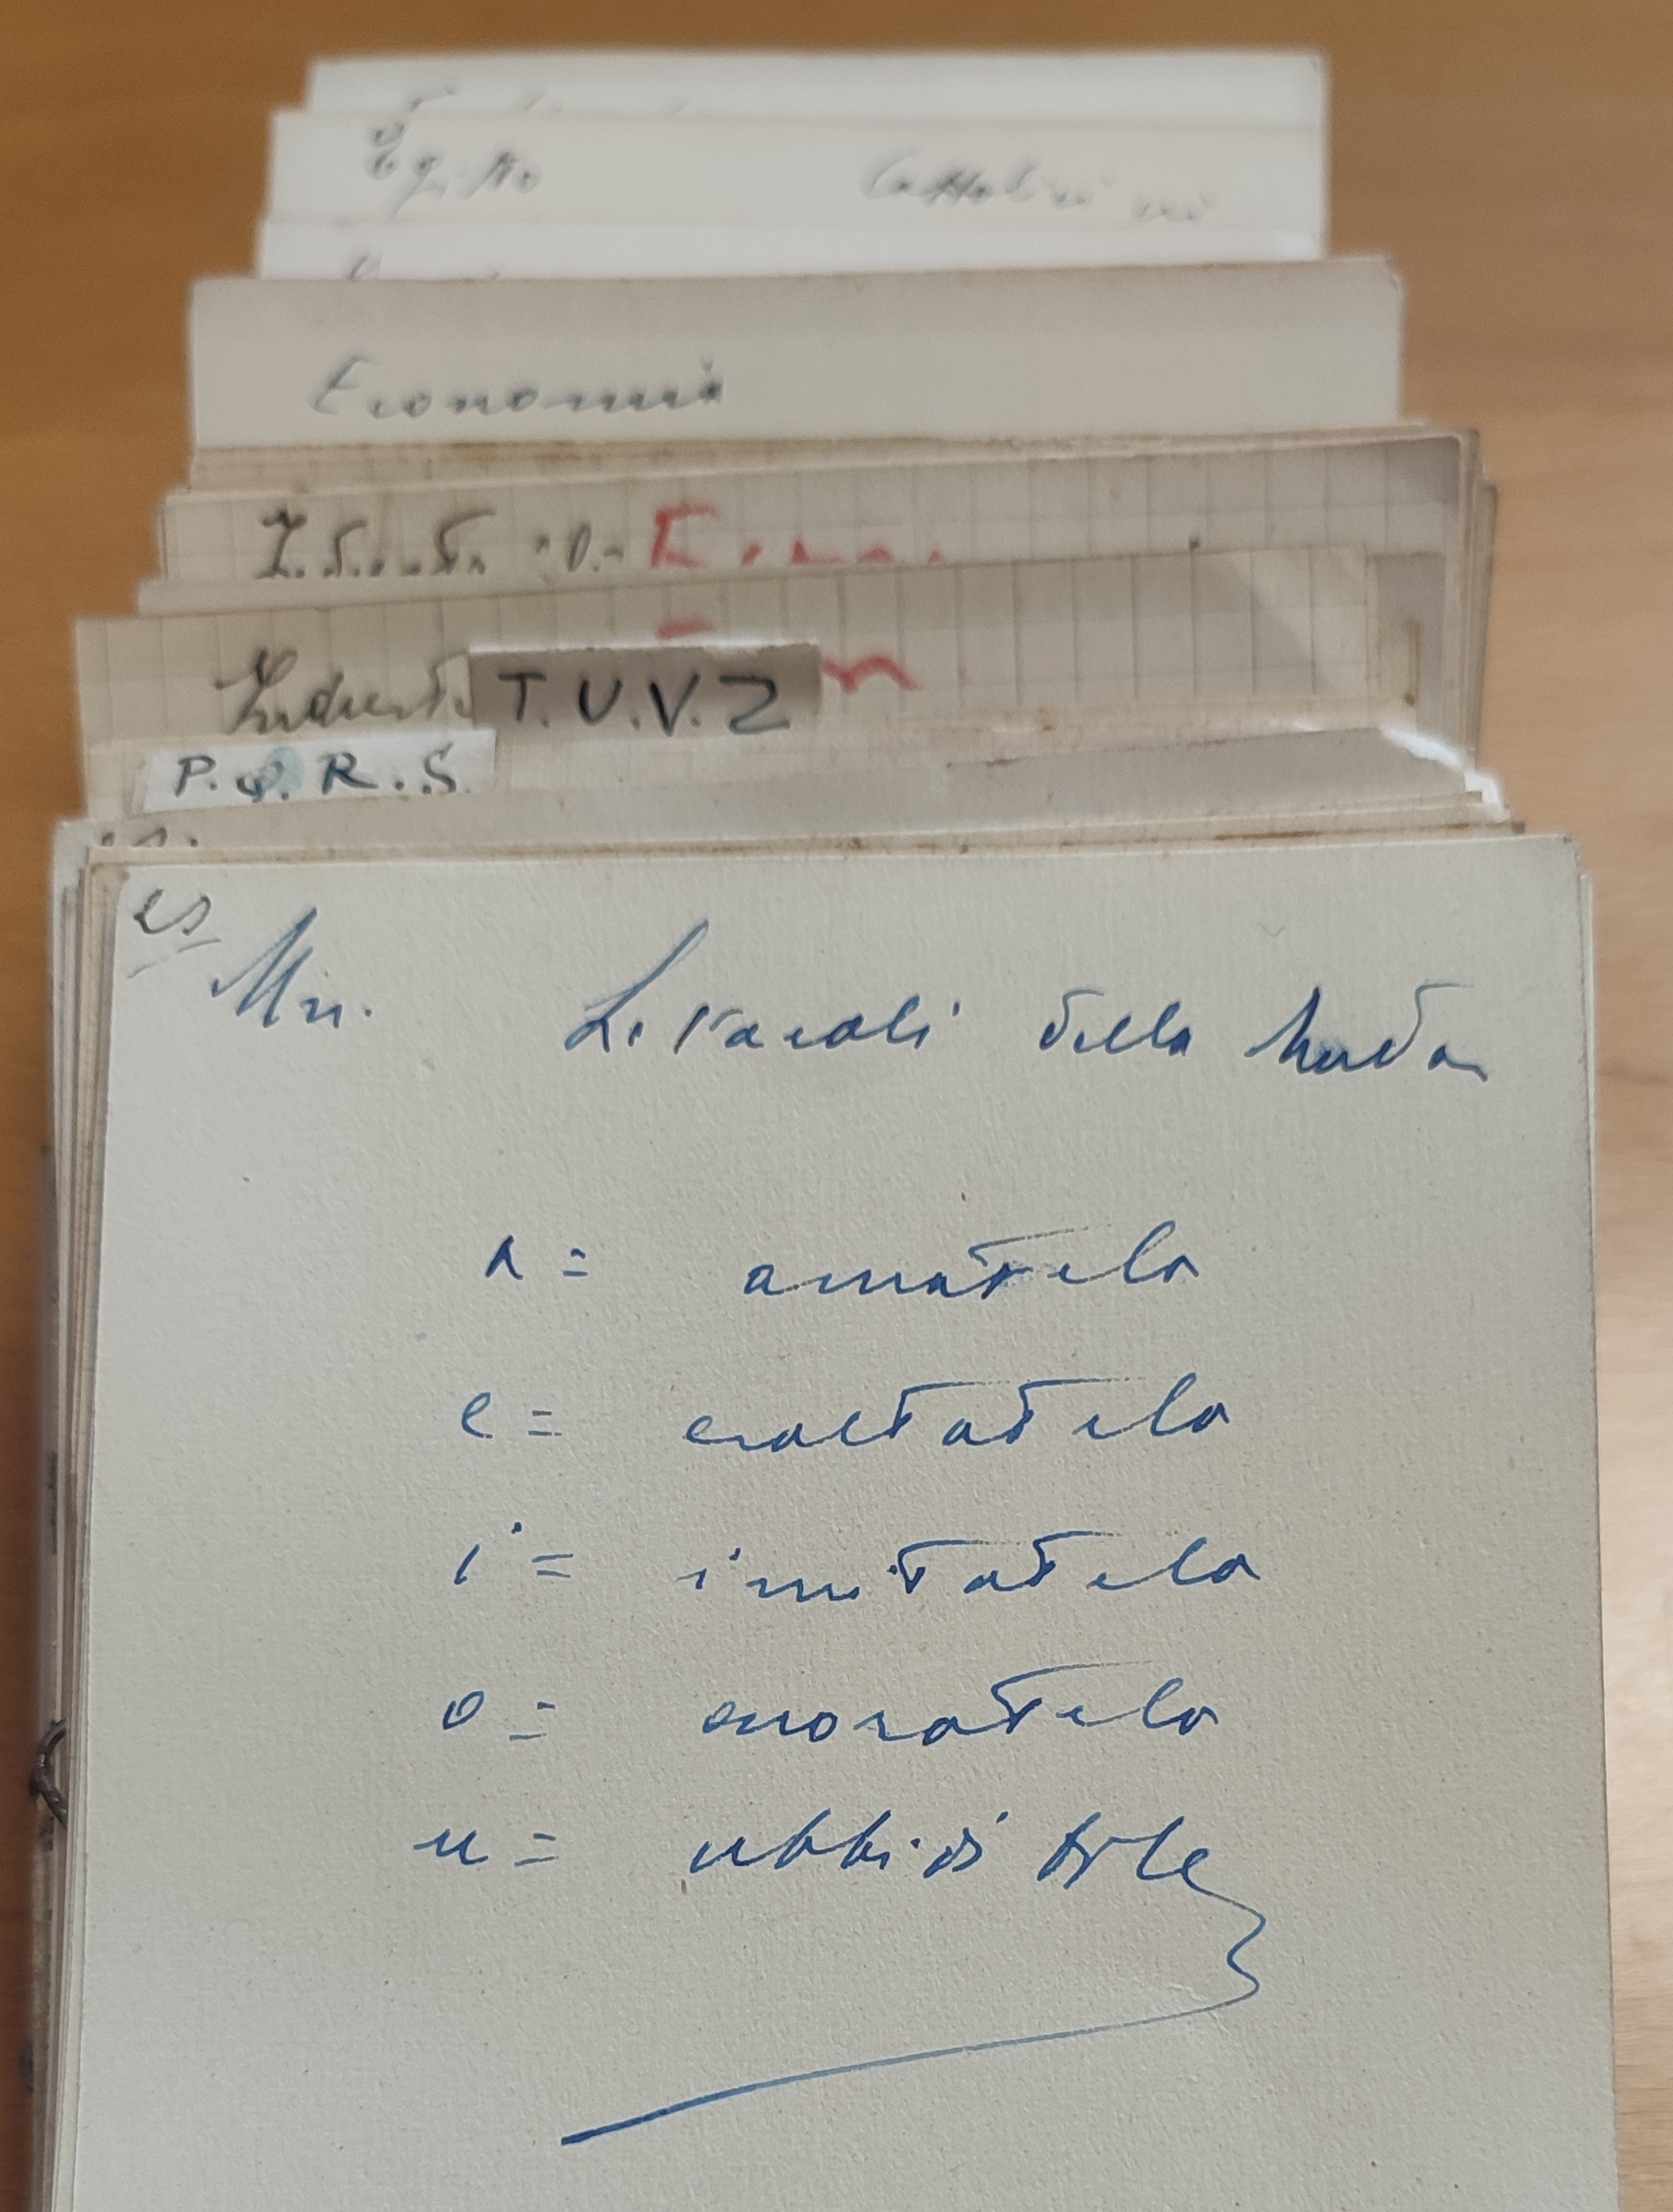 Egitto Cattolicesimo
Economia
Industria
T.U.V.Z
P.Q.R.S.
es
Le vocali della
a = amatela
e = esaltatela
i = imitatela
o = onoratela
u = ubbiditele